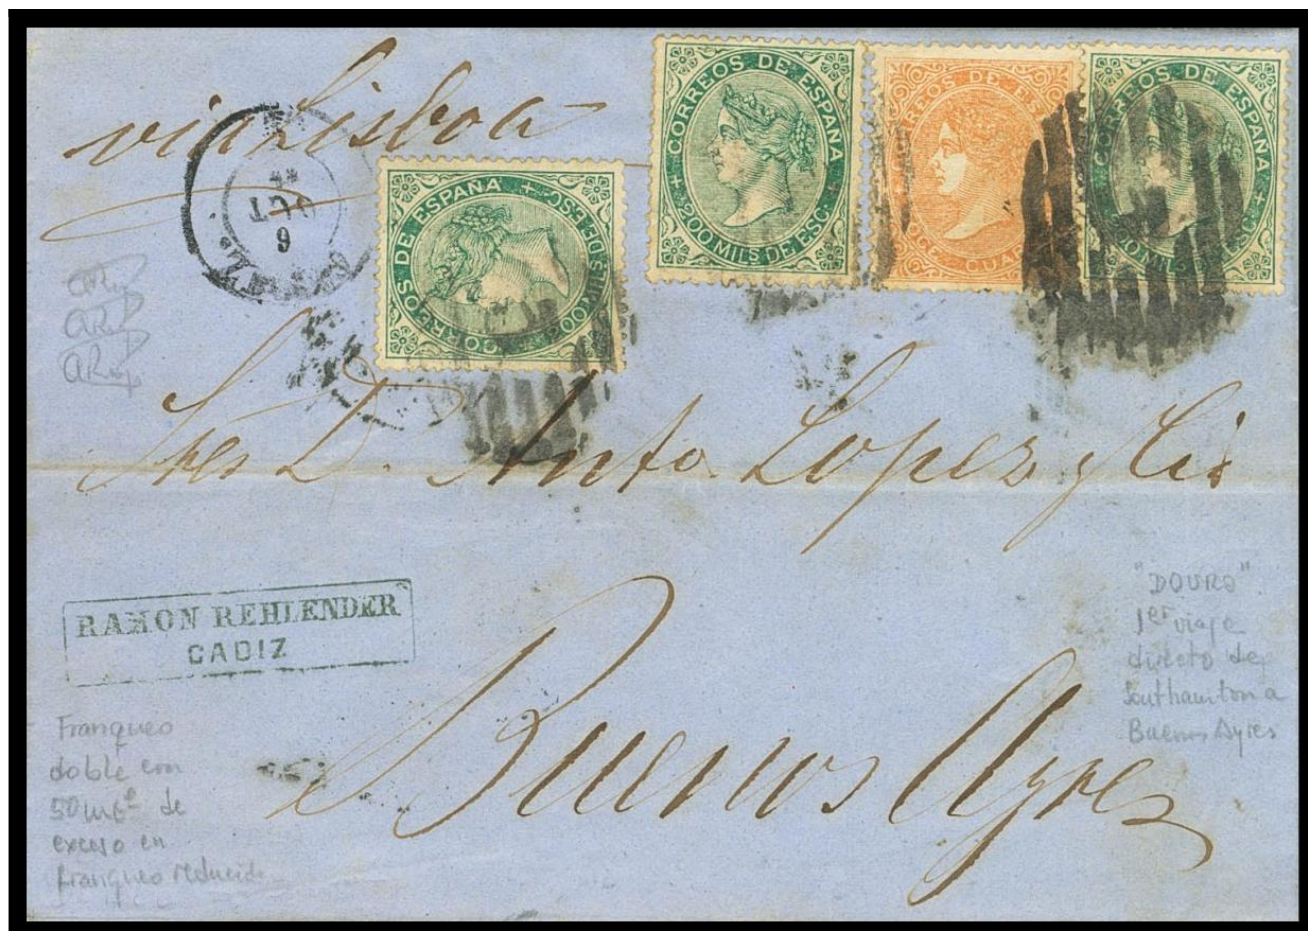 via Lisboa
CORREOS DE ESPAÑA
200 MILS DE ESC.
CORREOS DE ES
DOCE CUAR
CORREOS DE ESPAÑA
MILS ESC.
CORREOS DE ESPAÑA
S DE ESC.
OCT
6
Sres D. Anto. Lopez y Cia
RAMON REHLENDER
CADIZ
Buenos Ayres
"DOURO"
1er viaje
directo de
Southamton a
Buenos Ayres
Franqueo
doble con
50 de
exceso en
franqueo reducido